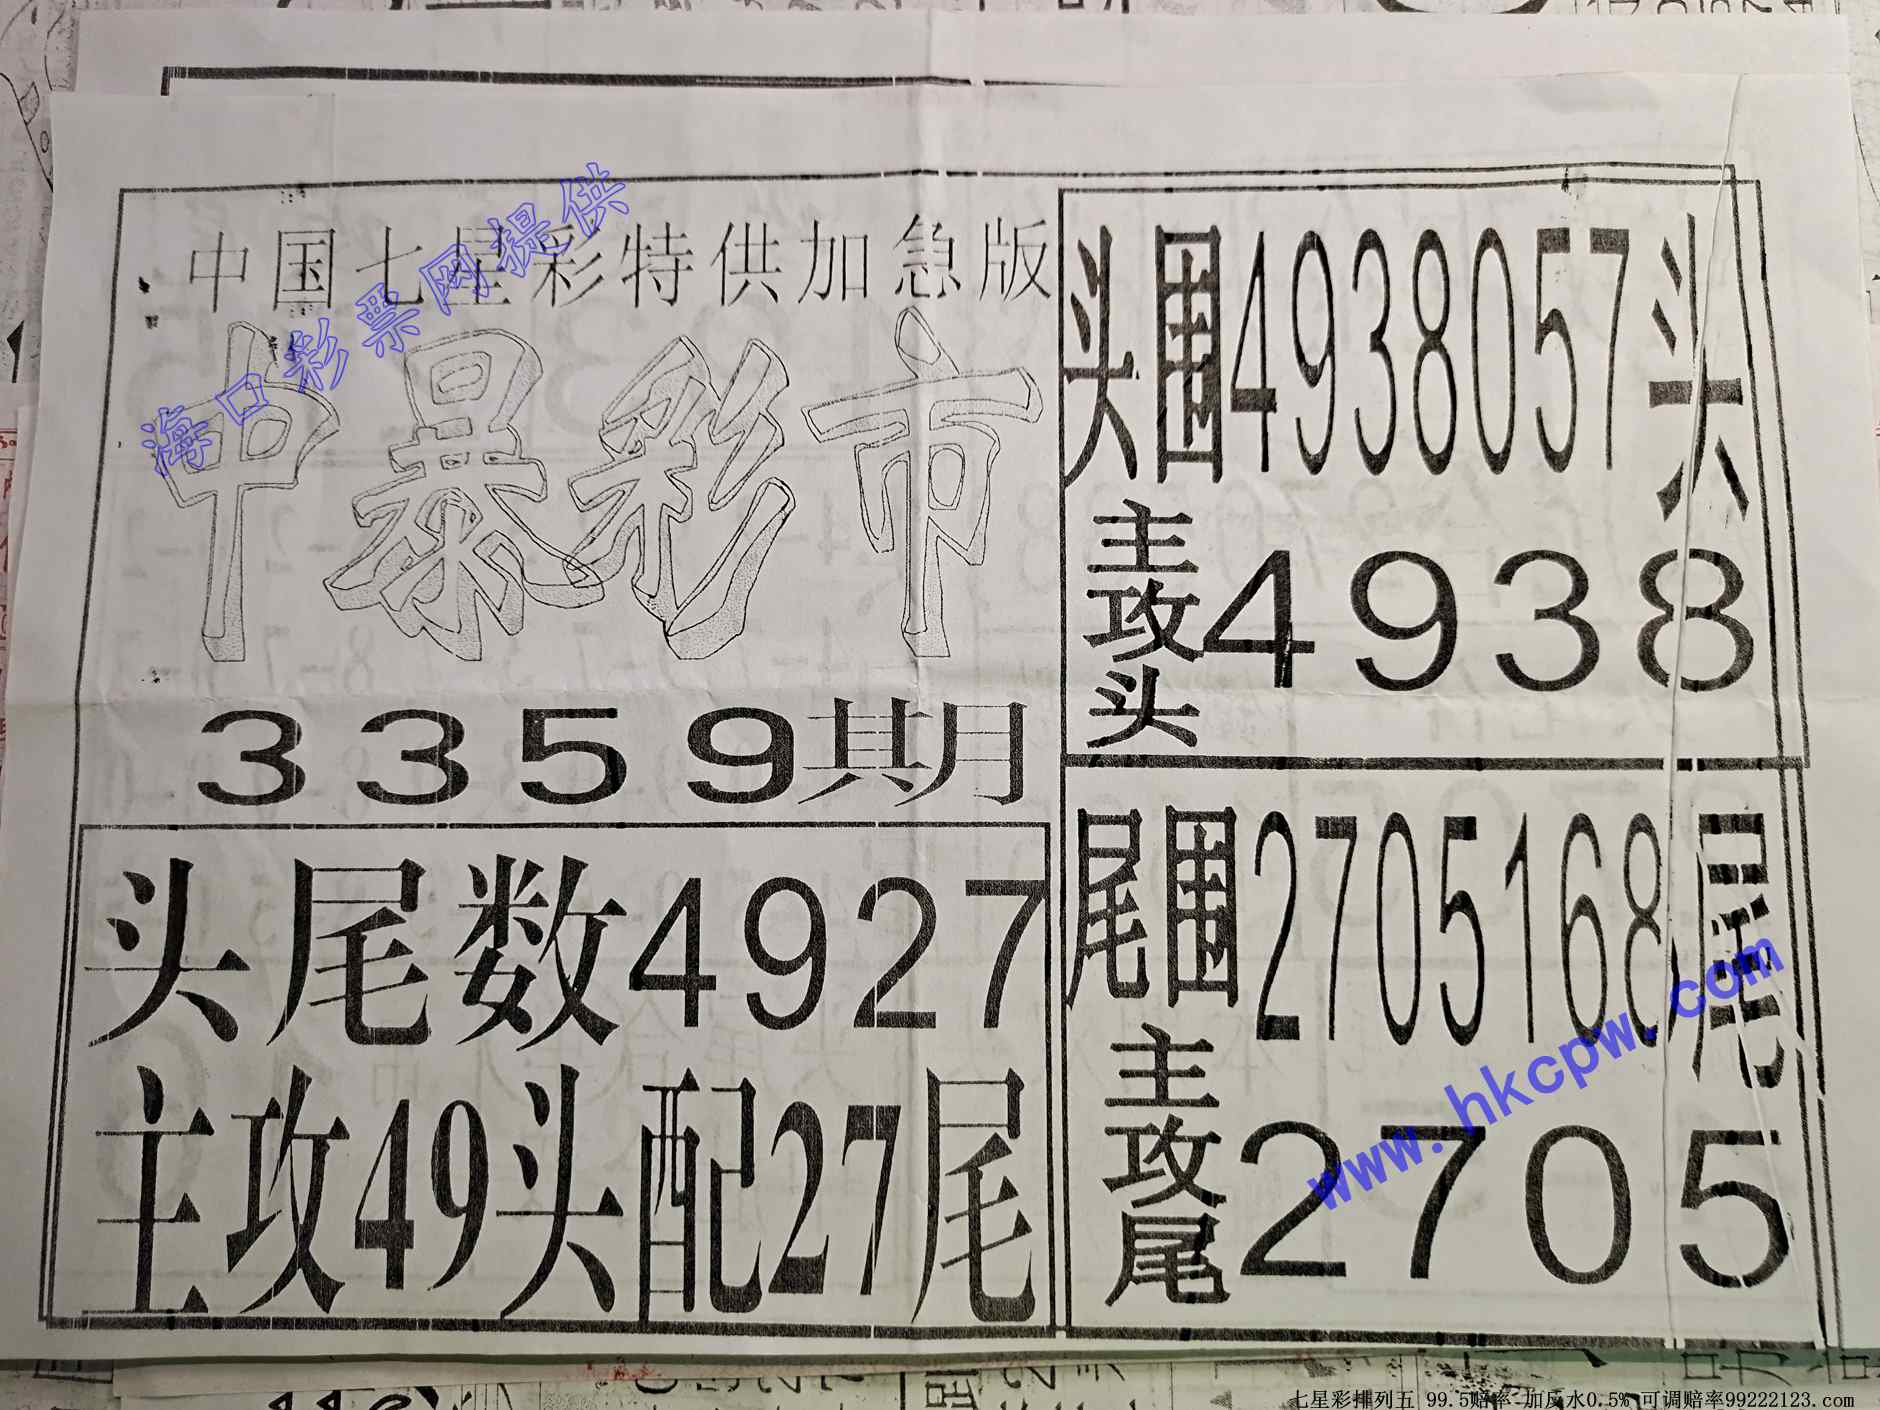 中国七星彩特供加急版
中暴彩市
3359期
头尾数4927
主攻49头配27尾
头围4938057头
主攻头4938
尾围2705168尾
主攻尾2705
海口彩票网提供
www.hkcpw.com
七星彩排列五 99.5赔率-加反水0.5% 可调赔率99222123.com